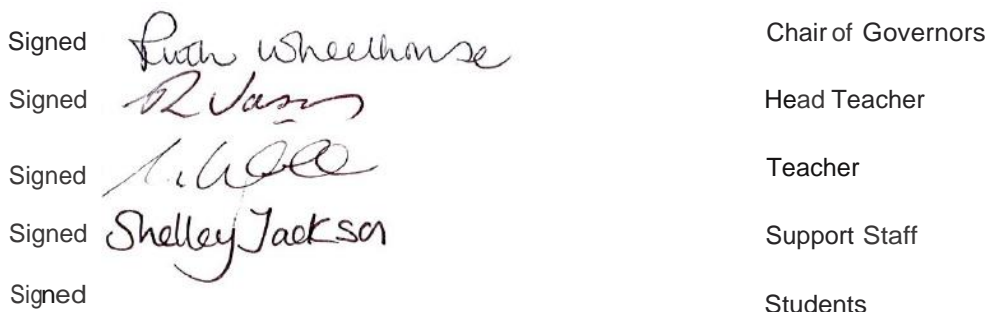 Signed Ruth Wheelhouse Chair of Governors
Signed Head Teacher
Signed Teacher
Signed Shelley Jackson Support Staff
Signed Students